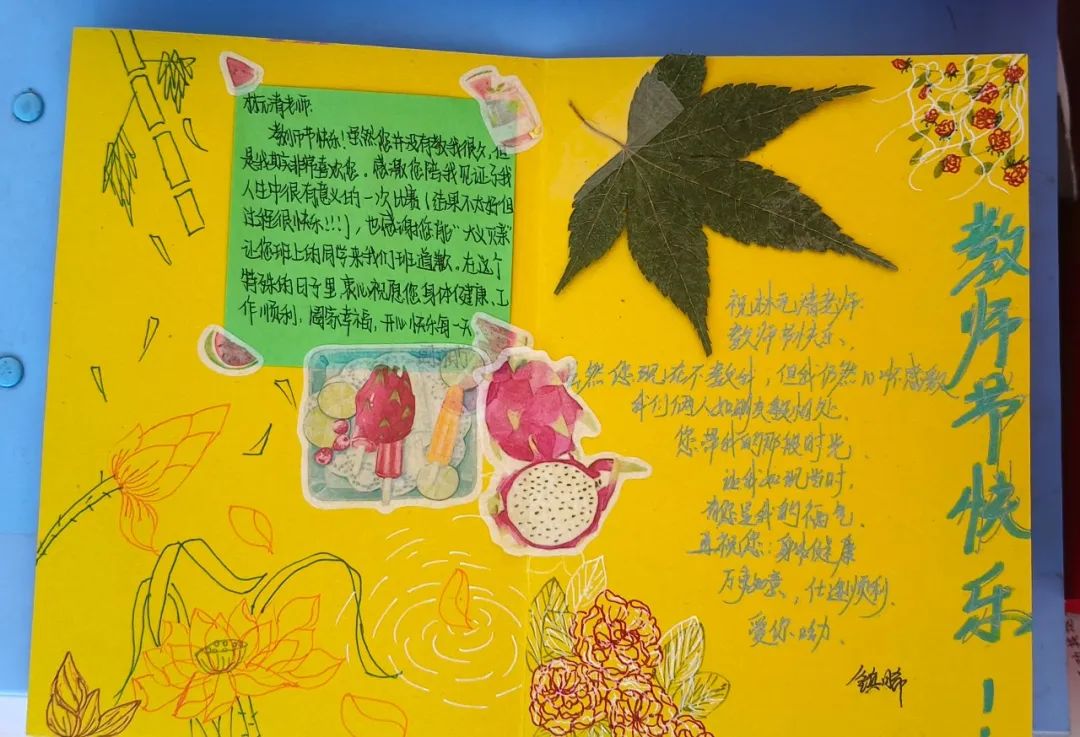 林元清老师:
教师节快乐!虽然您并没有教我很久,但
是我其实非常喜欢您。感谢您陪我见证了我
人生中很有意义的一次比赛(结果不太好但
过程很快乐!!!),也感谢您能"大义灭亲"
让您班上的同学来我们班道歉。在这个
特殊的日子里衷心祝愿您身体健康、工
作顺利,阖家幸福,开心快乐每一天
祝林元清老师
教师节快乐、
虽然您现在不教我,但我仍然心怀感激
我们俩人如朋友般相处、
您带我的那段时光
让我如现当时,
有您是我的福气
再祝您:身体健康
万事如意、,仕途顺利、
爱你呦、
教师节快乐!!